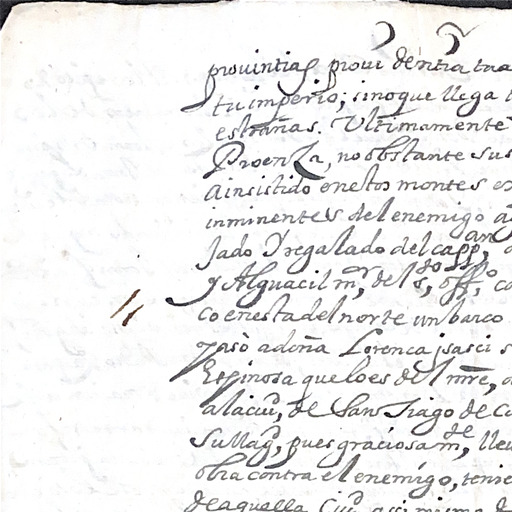 provintias, provi de nra tra
tu imperio; sino que llega
estrañas. Ultimamente
Proenza, no obstante sus
a insistido en estos montes
inminentes del enemigo
jado y regalado del capp.an,
y Alguacil m.r, del s.do off.o, co
co en esta del norte un barco
y asò a doña Lorenca jsasci s
Espinosa que lo es del mre,
a la ciu, de San Tiago de Cu
Su Mag.d, pues graciosam.de, llev
obra contra el enemigo, tenie
de aquella Ciu.d assi misma d